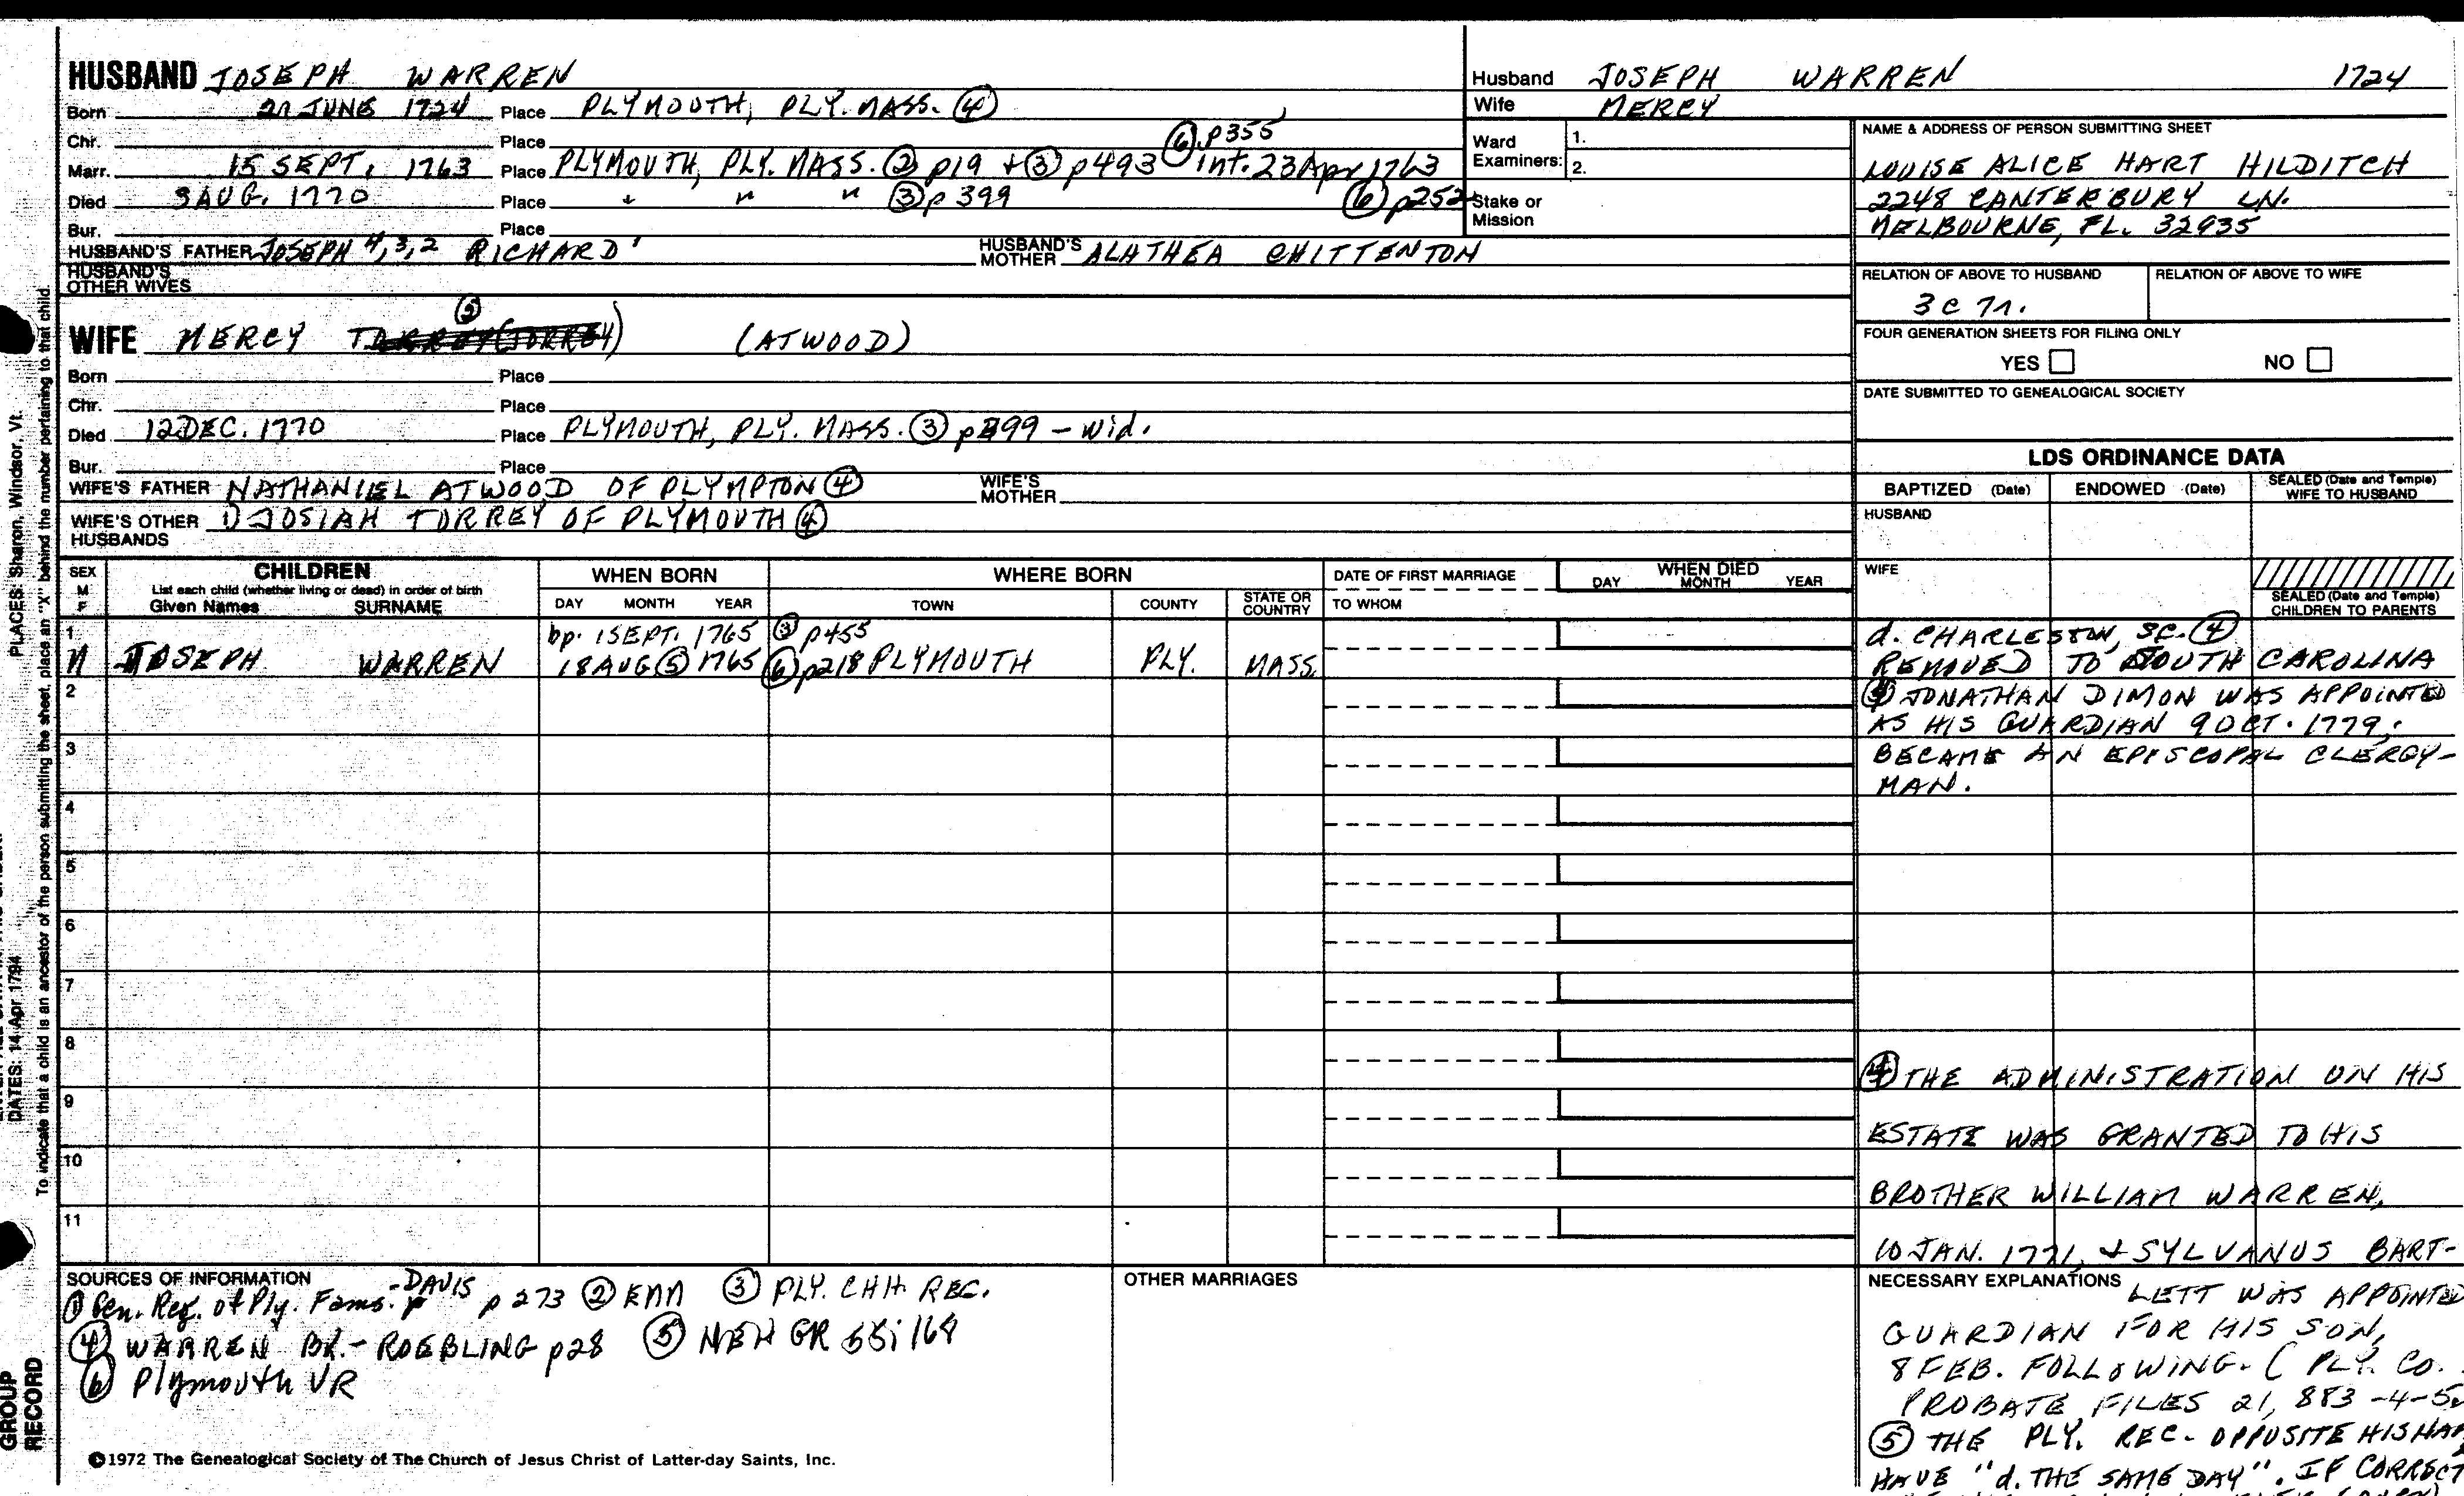 HUSBAND JOSEPH WARREN
Born JUNE 1724 Place PLYMOUTH, PLY. MASS. ④
Chr. Place ⑥ p355
Marr. 15 SEPT. 1763 Place PLYMOUTH, PLY. MASS. ② p19 + ③ p493 int. 23 Apr 1763
Died 3 AUG. 1770 Place " " " ③ p 399 ⑥ p252
Bur. Place
HUSBAND'S FATHER JOSEPH 4,3,2 RICHARD' HUSBAND'S MOTHER ALATHEA CHITTENTON
HUSBAND'S OTHER WIVES
⑤
WIFE MERCY (ATWOOD)
Born Place
Chr. Place
Died 12 DEC. 1770 Place PLYMOUTH, PLY. MASS. ③ p399 - wid.
Bur. Place
WIFE'S FATHER NATHANIEL ATWOOD OF PLYMPTON ④ WIFE'S MOTHER
WIFE'S OTHER HUSBANDS 1) JOSIAH TORREY OF PLYMOUTH ④
Husband JOSEPH WARREN 1724
Wife MERCY
Ward Examiners: 1.
2.
Stake or Mission
NAME & ADDRESS OF PERSON SUBMITTING SHEET
LOUISE ALICE HART HILDITCH
2248 CANTERBURY LN.
MELBOURNE, FL. 32935
RELATION OF ABOVE TO HUSBAND RELATION OF ABOVE TO WIFE
3C 7r.
FOUR GENERATION SHEETS FOR FILING ONLY
YES NO
DATE SUBMITTED TO GENEALOGICAL SOCIETY
LDS ORDINANCE DATA
BAPTIZED (Date) ENDOWED (Date) SEALED (Date and Temple) WIFE TO HUSBAND
HUSBAND
WIFE
SEALED (Date and Temple) CHILDREN TO PARENTS
SEX M F CHILDREN WHEN BORN WHERE BORN DATE OF FIRST MARRIAGE WHEN DIED
List each child (whether living or dead) in order of birth
Given Names SURNAME DAY MONTH YEAR TOWN COUNTY STATE OR COUNTRY TO WHOM DAY MONTH YEAR
1 bp. 1 SEPT. 1765 ③ p455
M JOSEPH WARREN 18 AUG ⑤ 1765 ⑥ p218 PLYMOUTH PLY. MASS.
2
3
4
5
6
7
8
9
10
11
d. CHARLESTON, SC. ④
REMOVED TO SOUTH CAROLINA
④ JONATHAN DIMON WAS APPOINTED
AS HIS GUARDIAN 9 OCT. 1779.
BECAME AN EPISCOPAL CLERGY-
MAN.
④ THE ADMINISTRATION ON HIS
ESTATE WAS GRANTED TO HIS
BROTHER WILLIAM WARREN,
10 JAN. 1771, + SYLVANUS BART-
NECESSARY EXPLANATIONS LETT WAS APPOINTED
GUARDIAN FOR HIS SON,
8 FEB. FOLLOWING. (PLY. CO.
PROBATE FILES 21, 883-4-5
⑤ THE PLY. REC. OPPOSITE HIS
HAVE "d. THE SAME DAY". IF CORRECT
SOURCES OF INFORMATION
① Gen. Reg. of Ply. Fams. - DAVIS p 273 ② EMM ③ PLY. CHH. REC.
④ WARREN BK. - ROEBLING p28 ⑤ NEH GR 55:169
⑥ Plymouth VR
OTHER MARRIAGES
©1972 The Genealogical Society of The Church of Jesus Christ of Latter-day Saints, Inc.
PLACES: Sharon, Windsor, Vt.
DATES: 14 Apr 1794
To indicate that a child is an ancestor of the person submitting the sheet, place an "X" behind the number pertaining to that child.
GROUP
RECORD